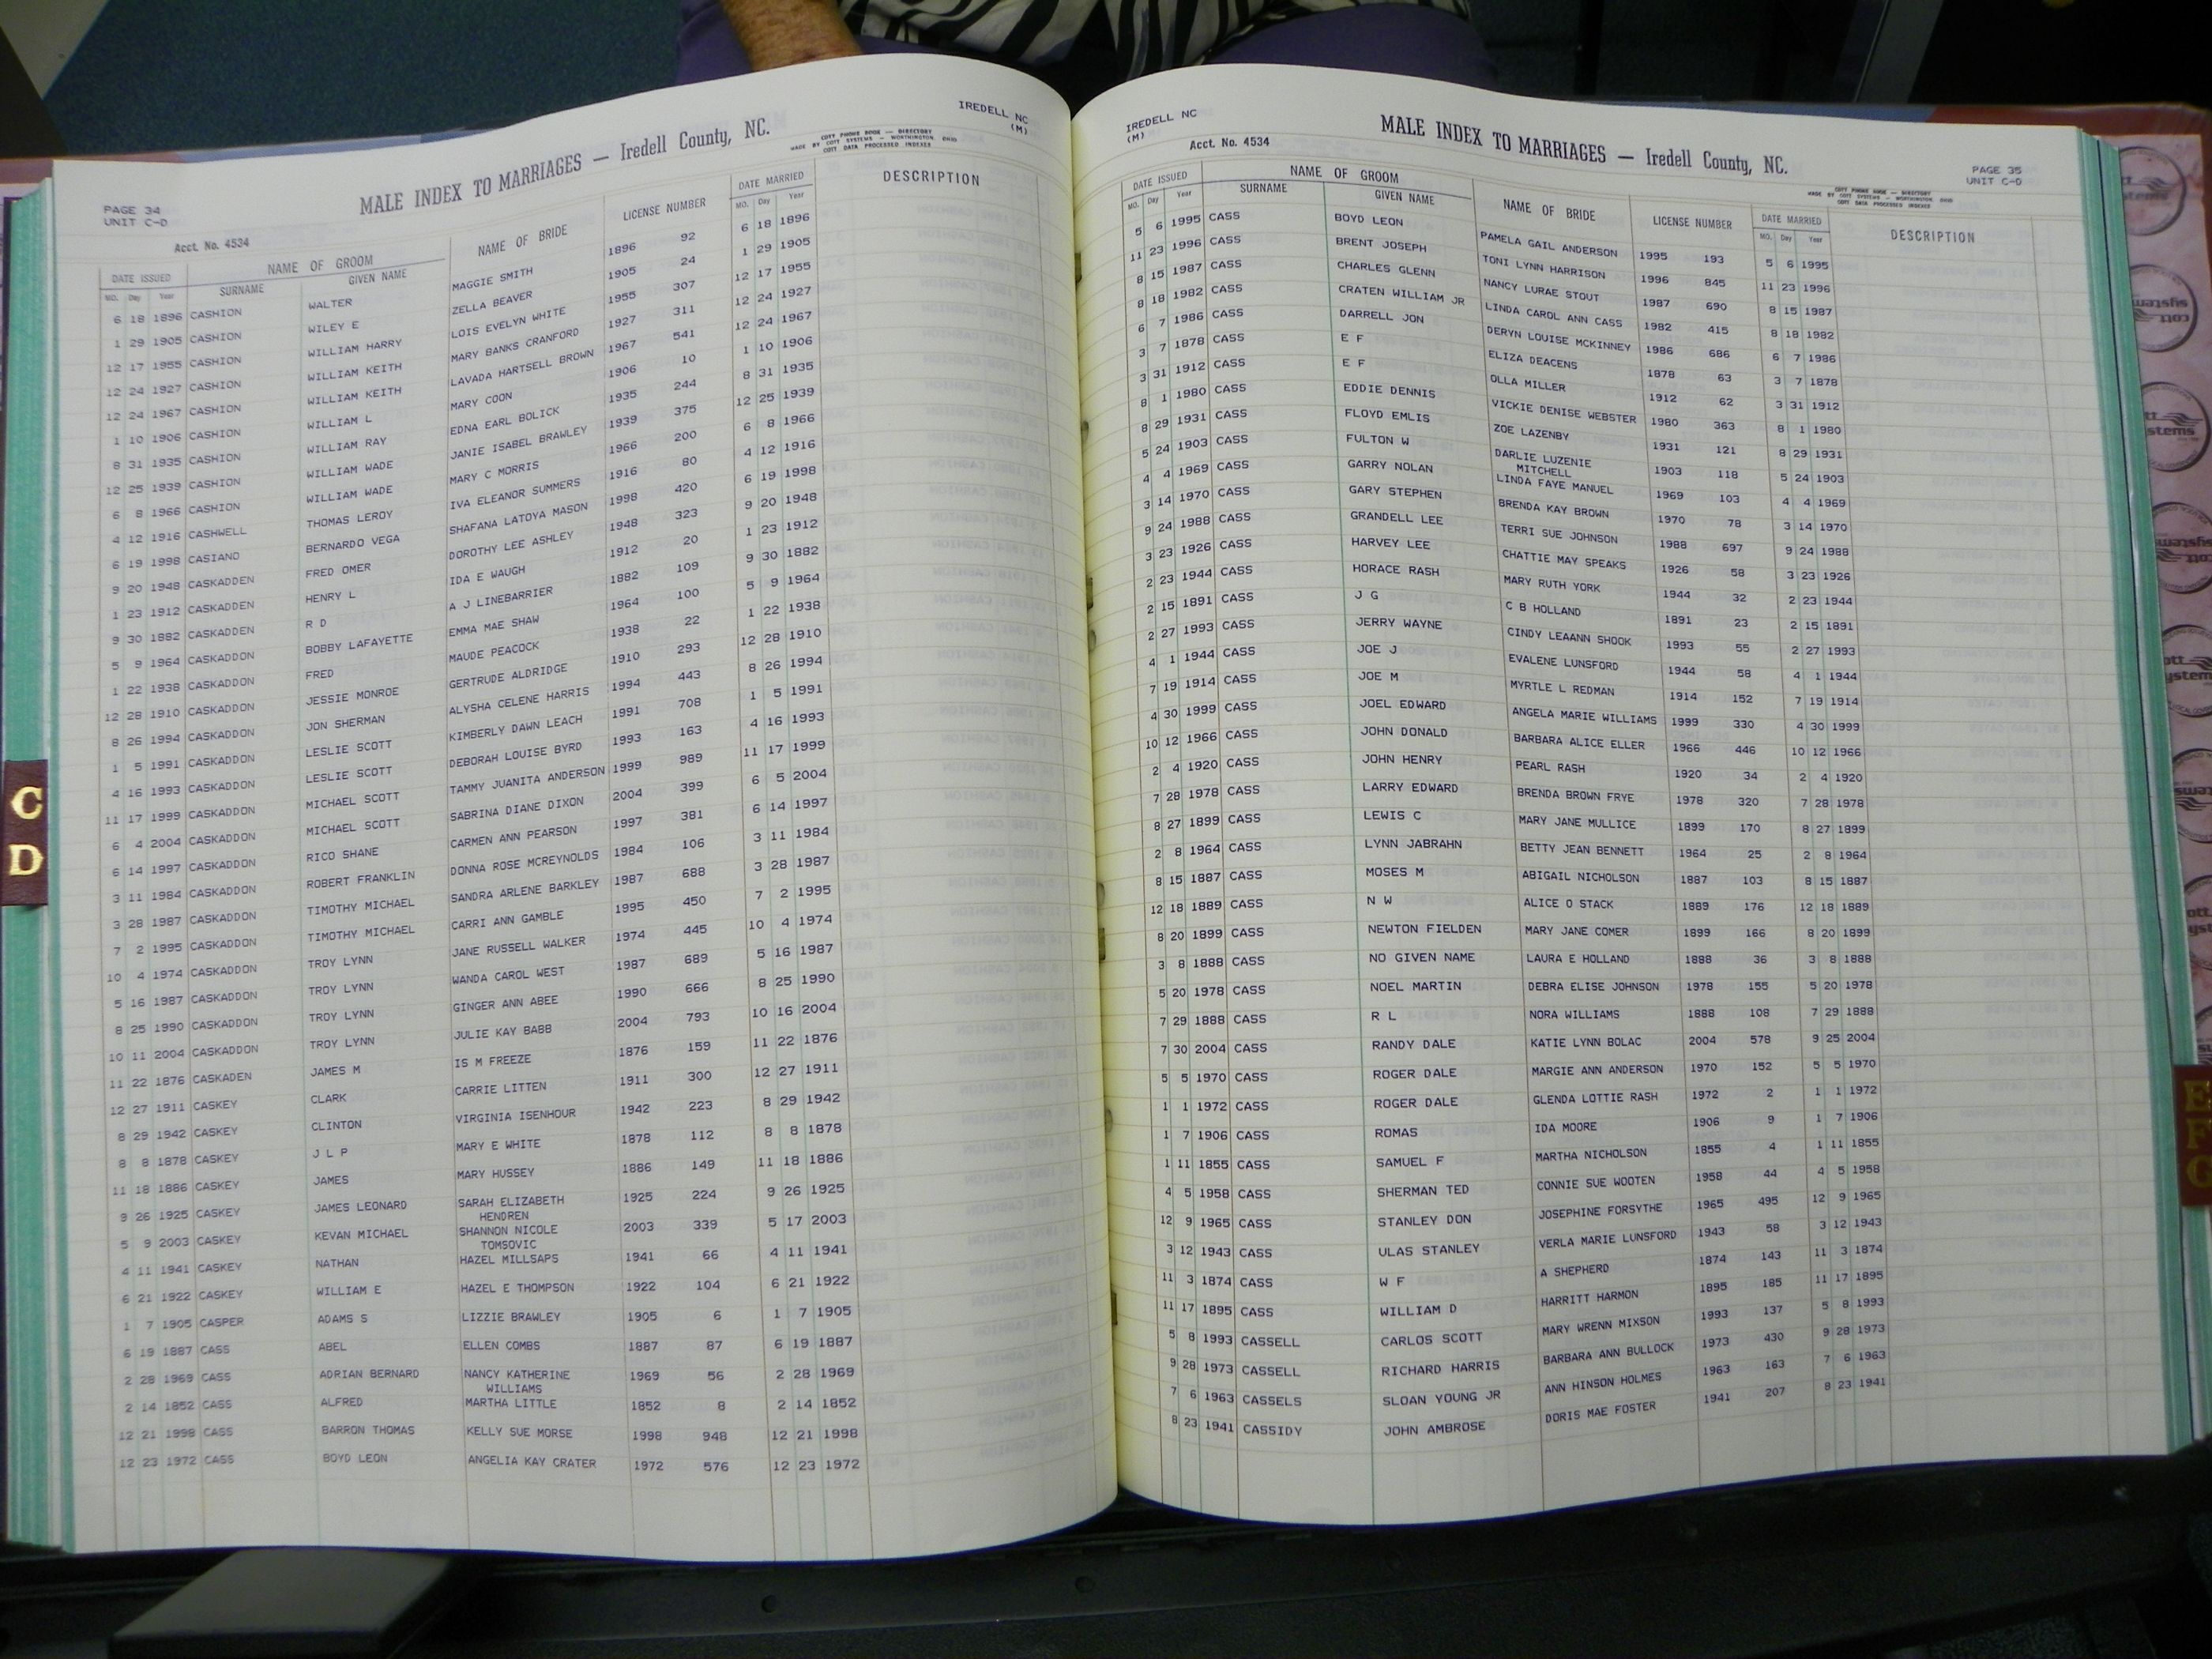 PAGE 34
UNIT C-D
Acct. No. 4534
MALE INDEX TO MARRIAGES — Iredell County, NC.
COTT PHONE BOOK — DIRECTORY
MADE BY COTT SYSTEMS — WORTHINGTON, OHIO
COTT DATA PROCESSED INDEXES
IREDELL NC
(M)
DATE ISSUED NAME OF GROOM NAME OF BRIDE LICENSE NUMBER DATE MARRIED DESCRIPTION
MO. Day Year SURNAME GIVEN NAME MO. Day Year
6 18 1896 CASHION WALTER MAGGIE SMITH 1896 92 6 18 1896
1 29 1905 CASHION WILEY E ZELLA BEAVER 1905 24 1 29 1905
12 17 1955 CASHION WILLIAM HARRY LOIS EVELYN WHITE 1955 307 12 17 1955
12 24 1927 CASHION WILLIAM KEITH MARY BANKS CRANFORD 1927 311 12 24 1927
12 24 1967 CASHION WILLIAM KEITH LAVADA HARTSELL BROWN 1967 541 12 24 1967
1 10 1906 CASHION WILLIAM L MARY COON 1906 10 1 10 1906
8 31 1935 CASHION WILLIAM RAY EDNA EARL BOLICK 1935 244 8 31 1935
12 25 1939 CASHION WILLIAM WADE JANIE ISABEL BRAWLEY 1939 375 12 25 1939
6 8 1966 CASHION WILLIAM WADE MARY C MORRIS 1966 200 6 8 1966
4 12 1916 CASHWELL THOMAS LEROY IVA ELEANOR SUMMERS 1916 80 4 12 1916
6 19 1998 CASIANO BERNARDO VEGA SHAFANA LATOYA MASON 1998 420 6 19 1998
9 20 1948 CASKADDEN FRED OMER DOROTHY LEE ASHLEY 1948 323 9 20 1948
1 23 1912 CASKADDEN HENRY L IDA E WAUGH 1912 20 1 23 1912
9 30 1882 CASKADDEN R D A J LINEBARRIER 1882 109 9 30 1882
5 9 1964 CASKADDON BOBBY LAFAYETTE EMMA MAE SHAW 1964 100 5 9 1964
1 22 1938 CASKADDON FRED MAUDE PEACOCK 1938 22 1 22 1938
12 28 1910 CASKADDON JESSIE MONROE GERTRUDE ALDRIDGE 1910 293 12 28 1910
8 26 1994 CASKADDON JON SHERMAN ALYSHA CELENE HARRIS 1994 443 8 26 1994
1 5 1991 CASKADDON LESLIE SCOTT KIMBERLY DAWN LEACH 1991 708 1 5 1991
4 16 1993 CASKADDON LESLIE SCOTT DEBORAH LOUISE BYRD 1993 163 4 16 1993
11 17 1999 CASKADDON MICHAEL SCOTT TAMMY JUANITA ANDERSON 1999 989 11 17 1999
6 4 2004 CASKADDON MICHAEL SCOTT SABRINA DIANE DIXON 2004 399 6 5 2004
6 14 1997 CASKADDON RICO SHANE CARMEN ANN PEARSON 1997 381 6 14 1997
3 11 1984 CASKADDON ROBERT FRANKLIN DONNA ROSE MCREYNOLDS 1984 106 3 11 1984
3 28 1987 CASKADDON TIMOTHY MICHAEL SANDRA ARLENE BARKLEY 1987 688 3 28 1987
7 2 1995 CASKADDON TIMOTHY MICHAEL CARRI ANN GAMBLE 1995 450 7 2 1995
10 4 1974 CASKADDON TROY LYNN JANE RUSSELL WALKER 1974 445 10 4 1974
5 16 1987 CASKADDON TROY LYNN WANDA CAROL WEST 1987 689 5 16 1987
8 25 1990 CASKADDON TROY LYNN GINGER ANN ABEE 1990 666 8 25 1990
10 11 2004 CASKADDON TROY LYNN JULIE KAY BABB 2004 793 10 16 2004
11 22 1876 CASKADEN JAMES M IS M FREEZE 1876 159 11 22 1876
12 27 1911 CASKEY CLARK CARRIE LITTEN 1911 300 12 27 1911
8 29 1942 CASKEY CLINTON VIRGINIA ISENHOUR 1942 223 8 29 1942
8 8 1878 CASKEY J L P MARY E WHITE 1878 112 8 8 1878
11 18 1886 CASKEY JAMES MARY HUSSEY 1886 149 11 18 1886
9 26 1925 CASKEY JAMES LEONARD SARAH ELIZABETH 1925 224 9 26 1925
HENDREN
5 9 2003 CASKEY KEVAN MICHAEL SHANNON NICOLE 2003 339 5 17 2003
TOMSOVIC
4 11 1941 CASKEY NATHAN HAZEL MILLSAPS 1941 66 4 11 1941
6 21 1922 CASKEY WILLIAM E HAZEL E THOMPSON 1922 104 6 21 1922
1 7 1905 CASPER ADAMS S LIZZIE BRAWLEY 1905 6 1 7 1905
6 19 1887 CASS ABEL ELLEN COMBS 1887 87 6 19 1887
2 28 1969 CASS ADRIAN BERNARD NANCY KATHERINE 1969 56 2 28 1969
WILLIAMS
2 14 1852 CASS ALFRED MARTHA LITTLE 1852 8 2 14 1852
12 21 1998 CASS BARRON THOMAS KELLY SUE MORSE 1998 948 12 21 1998
12 23 1972 CASS BOYD LEON ANGELIA KAY CRATER 1972 576 12 23 1972
C
D
IREDELL NC
(M)
Acct. No. 4534
MALE INDEX TO MARRIAGES — Iredell County, NC.
PAGE 35
UNIT C-D
COTT PHONE BOOK — DIRECTORY
MADE BY COTT SYSTEMS — WORTHINGTON, OHIO
COTT DATA PROCESSED INDEXES
DATE ISSUED NAME OF GROOM NAME OF BRIDE LICENSE NUMBER DATE MARRIED DESCRIPTION
MO. Day Year SURNAME GIVEN NAME MO. Day Year
5 6 1995 CASS BOYD LEON PAMELA GAIL ANDERSON 1995 193 5 6 1995
11 23 1996 CASS BRENT JOSEPH TONI LYNN HARRISON 1996 845 11 23 1996
8 15 1987 CASS CHARLES GLENN NANCY LURAE STOUT 1987 690 8 15 1987
8 18 1982 CASS CRATEN WILLIAM JR LINDA CAROL ANN CASS 1982 415 8 18 1982
6 7 1986 CASS DARRELL JON DERYN LOUISE MCKINNEY 1986 686 6 7 1986
3 7 1878 CASS E F ELIZA DEACENS 1878 63 3 7 1878
3 31 1912 CASS E F OLLA MILLER 1912 62 3 31 1912
8 1 1980 CASS EDDIE DENNIS VICKIE DENISE WEBSTER 1980 363 8 1 1980
8 29 1931 CASS FLOYD EMLIS ZOE LAZENBY 1931 121 8 29 1931
5 24 1903 CASS FULTON W DARLIE LUZENIE 1903 118 5 24 1903
MITCHELL
4 4 1969 CASS GARRY NOLAN LINDA FAYE MANUEL 1969 103 4 4 1969
3 14 1970 CASS GARY STEPHEN BRENDA KAY BROWN 1970 78 3 14 1970
9 24 1988 CASS GRANDELL LEE TERRI SUE JOHNSON 1988 697 9 24 1988
3 23 1926 CASS HARVEY LEE CHATTIE MAY SPEAKS 1926 58 3 23 1926
2 23 1944 CASS HORACE RASH MARY RUTH YORK 1944 32 2 23 1944
2 15 1891 CASS J G C B HOLLAND 1891 23 2 15 1891
2 27 1993 CASS JERRY WAYNE CINDY LEAANN SHOOK 1993 55 2 27 1993
4 1 1944 CASS JOE J EVALENE LUNSFORD 1944 58 4 1 1944
7 19 1914 CASS JOE M MYRTLE L REDMAN 1914 152 7 19 1914
4 30 1999 CASS JOEL EDWARD ANGELA MARIE WILLIAMS 1999 330 4 30 1999
10 12 1966 CASS JOHN DONALD BARBARA ALICE ELLER 1966 446 10 12 1966
2 4 1920 CASS JOHN HENRY PEARL RASH 1920 34 2 4 1920
7 28 1978 CASS LARRY EDWARD BRENDA BROWN FRYE 1978 320 7 28 1978
8 27 1899 CASS LEWIS C MARY JANE MULLICE 1899 170 8 27 1899
2 8 1964 CASS LYNN JABRAHN BETTY JEAN BENNETT 1964 25 2 8 1964
8 15 1887 CASS MOSES M ABIGAIL NICHOLSON 1887 103 8 15 1887
12 18 1889 CASS N W ALICE O STACK 1889 176 12 18 1889
8 20 1899 CASS NEWTON FIELDEN MARY JANE COMER 1899 166 8 20 1899
3 8 1888 CASS NO GIVEN NAME LAURA E HOLLAND 1888 36 3 8 1888
5 20 1978 CASS NOEL MARTIN DEBRA ELISE JOHNSON 1978 155 5 20 1978
7 29 1888 CASS R L NORA WILLIAMS 1888 108 7 29 1888
7 30 2004 CASS RANDY DALE KATIE LYNN BOLAC 2004 578 9 25 2004
5 5 1970 CASS ROGER DALE MARGIE ANN ANDERSON 1970 152 5 5 1970
1 1 1972 CASS ROGER DALE GLENDA LOTTIE RASH 1972 2 1 1 1972
1 7 1906 CASS ROMAS IDA MOORE 1906 9 1 7 1906
1 11 1855 CASS SAMUEL F MARTHA NICHOLSON 1855 4 1 11 1855
4 5 1958 CASS SHERMAN TED CONNIE SUE WOOTEN 1958 44 4 5 1958
12 9 1965 CASS STANLEY DON JOSEPHINE FORSYTHE 1965 495 12 9 1965
3 12 1943 CASS ULAS STANLEY VERLA MARIE LUNSFORD 1943 58 3 12 1943
11 3 1874 CASS W F A SHEPHERD 1874 143 11 3 1874
11 17 1895 CASS WILLIAM D HARRITT HARMON 1895 185 11 17 1895
5 8 1993 CASSELL CARLOS SCOTT MARY WRENN MIXSON 1993 137 5 8 1993
9 28 1973 CASSELL RICHARD HARRIS BARBARA ANN BULLOCK 1973 430 9 28 1973
7 6 1963 CASSELS SLOAN YOUNG JR ANN HINSON HOLMES 1963 163 7 6 1963
8 23 1941 CASSIDY JOHN AMBROSE DORIS MAE FOSTER 1941 207 8 23 1941